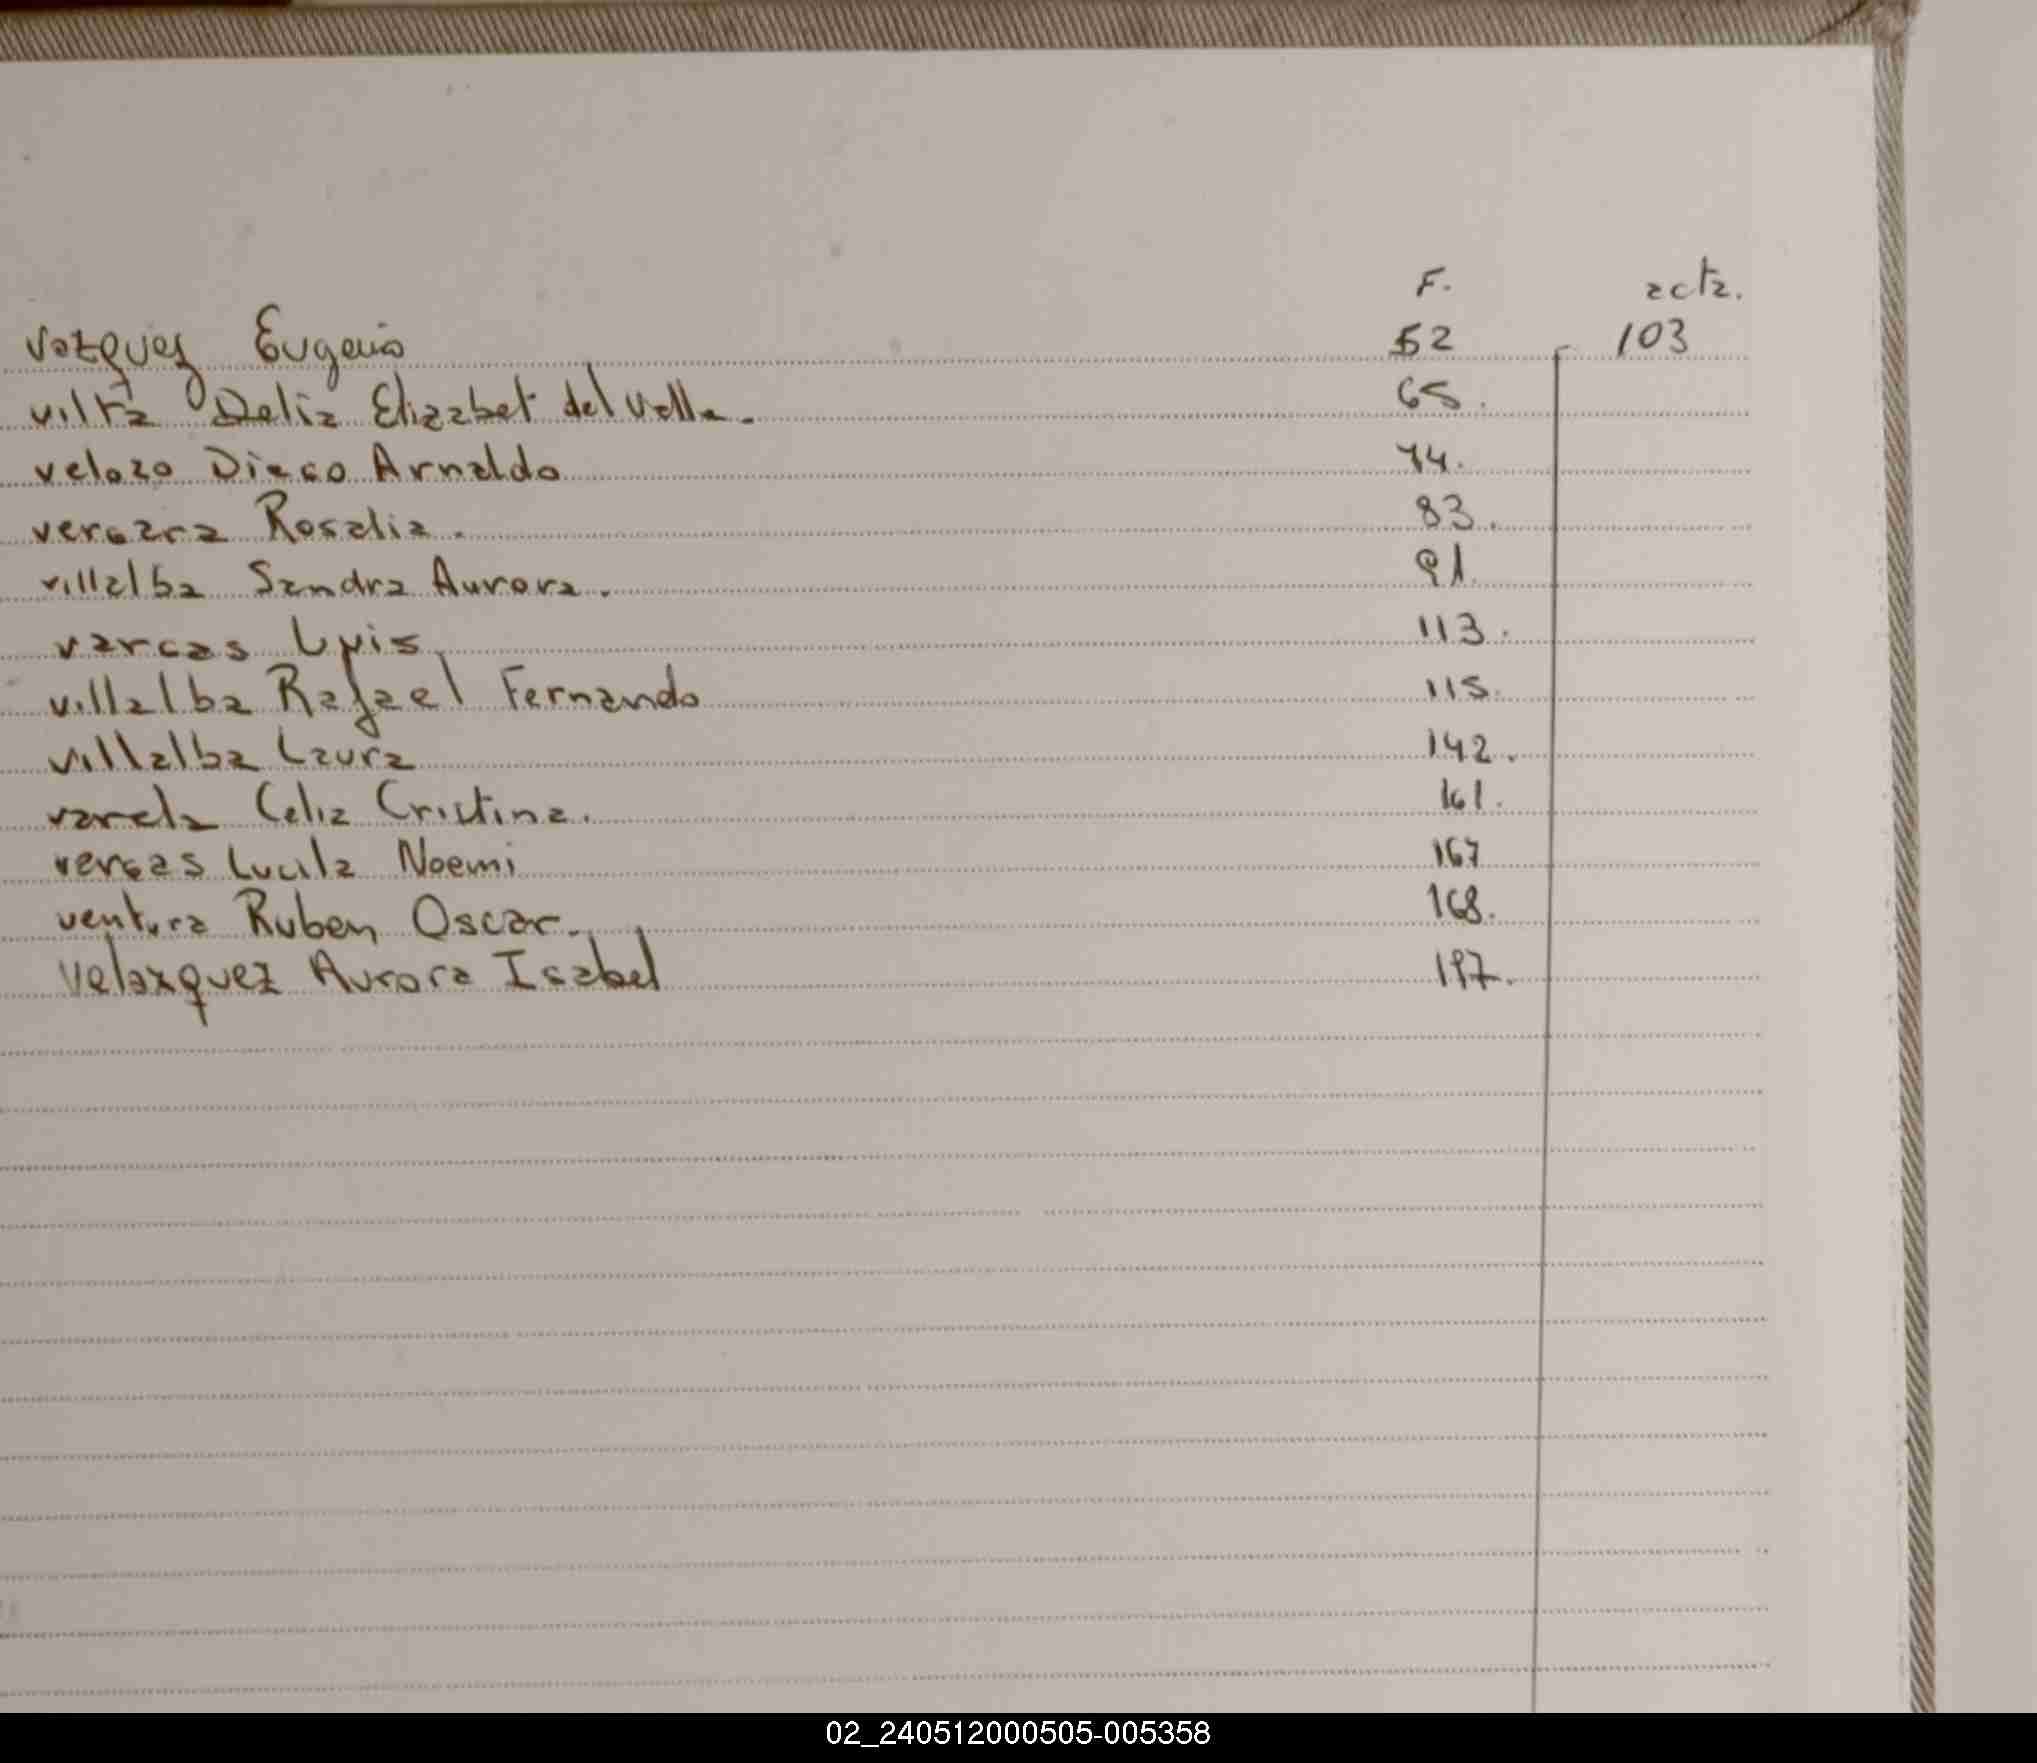 F. acta.
Vazquez Eugenio 52 103
vilta Delia Elizabet del Valle. 65.
velozo Diego Arnaldo 74.
vergara Rosalia. 83.
villalba Sandra Aurora. 91.
vargas Luis. 113.
villalba Rafael Fernando 115.
villalba Laura 142.
varela Celia Cristina. 161.
vergas Lucila Noemi 167
ventura Ruben Oscar. 168.
Velazquez Aurora Isabel 197.
02_240512000505-005358